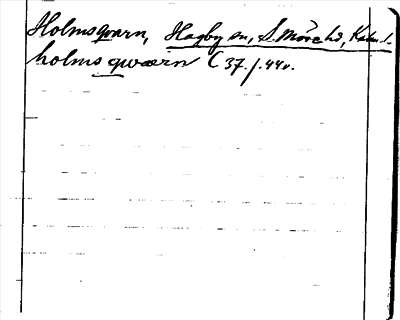 Holmsqvarn, Hagby sn, S. Möre hd, Kalm. l.
holms qwærn C 37. f. 44v.